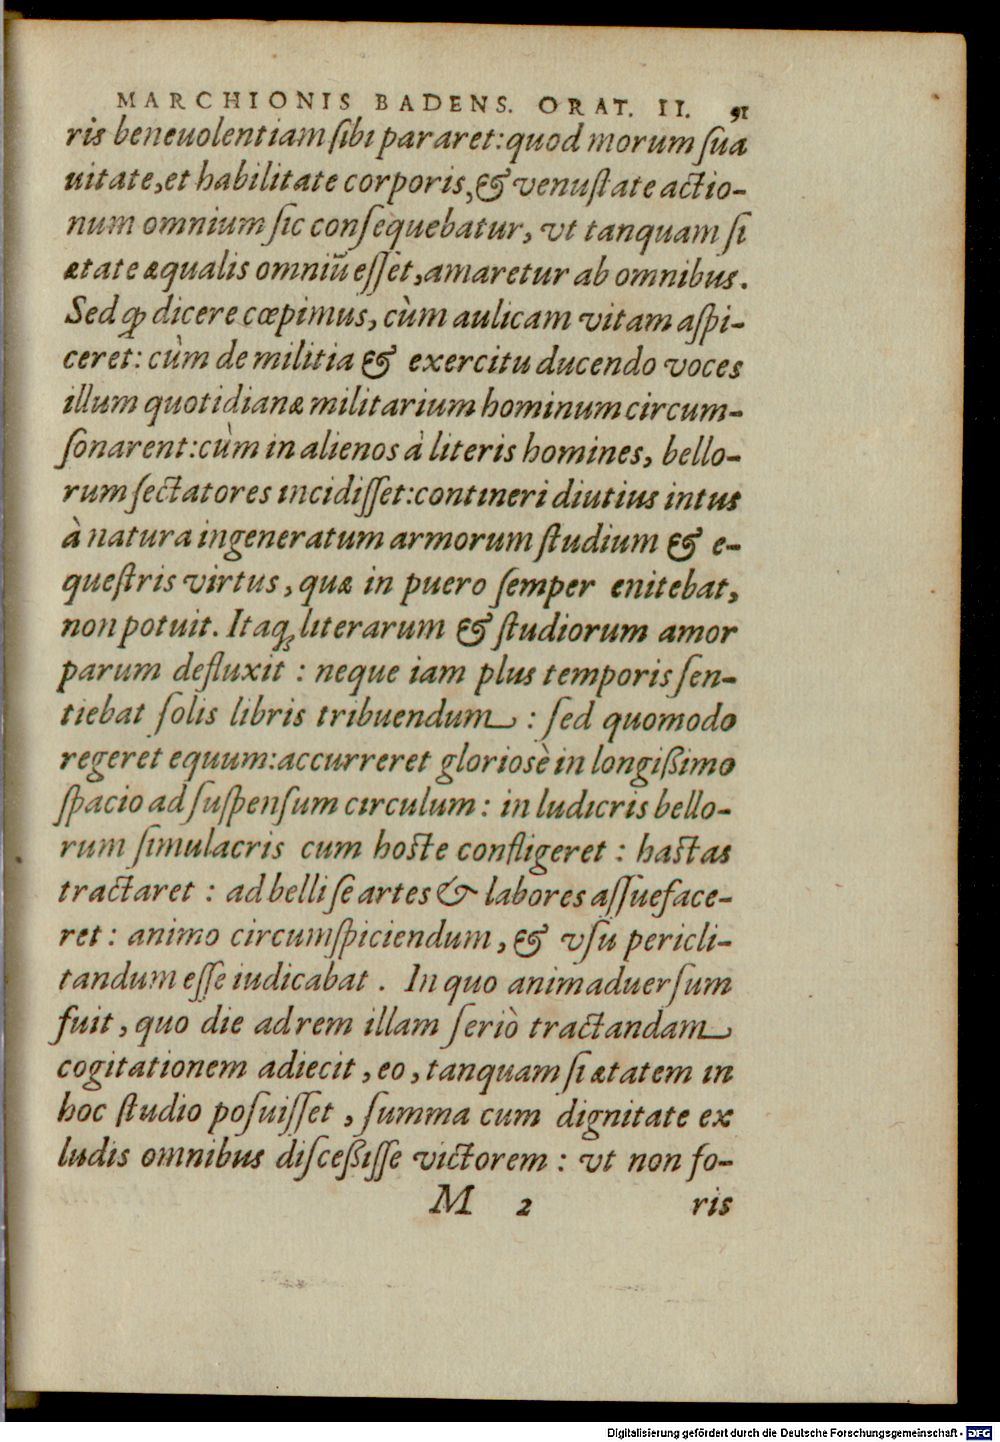 MARCHIONIS BADENS. ORAT. II. 91
ris beneuolentiam ſibi pararet: quod morum ſua
uitate, et habilitate corporis, & venuſtate actio-
num omnium ſic conſequebatur, vt tanquam ſi
ætate æqualis omniũ eſſet, amaretur ab omnibus.
Sed qꝫ dicere cœpimus, cùm aulicam vitam aſpi-
ceret: cùm de militia & exercitu ducendo voces
illum quotidianæ militarium hominum circum-
ſonarent: cùm in alienos à literis homines, bello-
rum ſectatores incidiſſet: contineri diutius intus
à natura ingeneratum armorum ſtudium & e-
queſtris virtus, quæ in puero ſemper enitebat,
non potuit. Itaqꝫ literarum & ſtudiorum amor
parum defluxit : neque iam plus temporis ſen-
tiebat ſolis libris tribuendum : ſed quomodo
regeret equum: accurreret glorioſè in longiſsimo
ſpacio ad ſuſpenſum circulum : in ludicris bello-
rum ſimulacris cum hoſte confligeret : haſtas
tractaret : ad belli ſe artes & labores aſſueface-
ret : animo circumſpiciendum, & vſu pericli-
tandum eſſe iudicabat . In quo animaduerſum
fuit, quo die ad rem illam ſeriò tractandam
cogitationem adiecit, eo, tanquam ſi ætatem in
hoc ſtudio poſuiſſet, ſumma cum dignitate ex
ludis omnibus diſceſsiſſe victorem : vt non fo-
M 2 ris
Digitalisierung gefördert durch die Deutsche Forschungsgemeinschaft - DFG